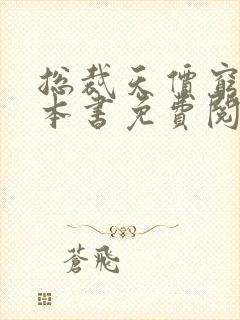 总裁天價窮
本書免費閱
蒼飛